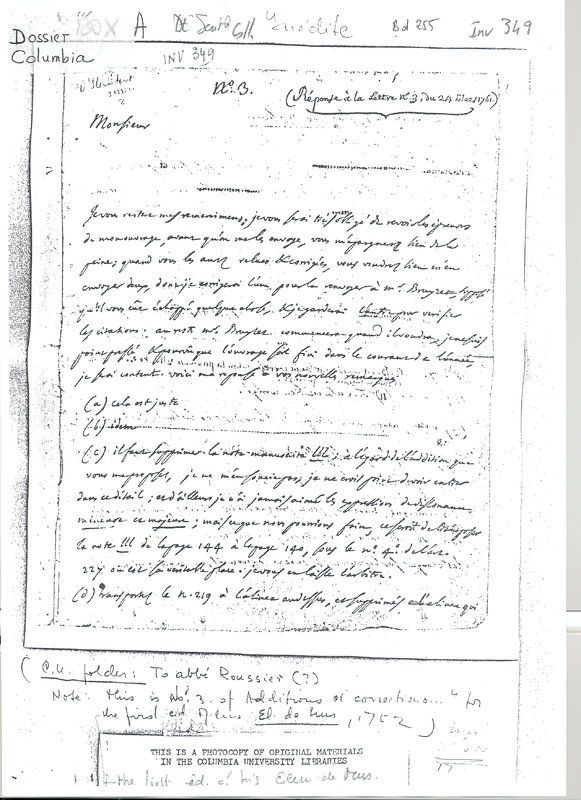 BOX A De Smith Coll. Inédite Bd 255 Inv 349
Dossier
Columbia INV 349
N.° 3.
(Réponse à la Lettre N.° 3, du 24 Mars 1761.)
Monsieur
Je vous réitère mes remercimens; je vous serai très obligé de revoir les épreuves
de mon ouvrage, avant qu'on me les envoye, vous m'épargnerez bien de la
peine; quand vous les aurez relues & corrigées, vous voudrez bien m'en
envoyer deux, dont je corrigerai l'une pour la renvoyer à Mr. Bruyset, supposé
qu'il vous eût échappé quelque chose, & je garderai l'autre pour vérifier
les citations. au reste Mr. Bruyset commencera quand il voudra, je ne suis
point pressé & pourvû que l'ouvrage soit fini dans le courant de l'année,
je serai content. voici ma réponse à vos nouvelles remarques
(a) cela est juste
(b) idem
(c) il faut supprimer la note manuscrite III; à l'égard de l'addition que
vous me proposez, je ne m'en soucie pas, je ne crois pas devoir entrer
dans ce détail; et d'ailleurs je n'ai jamais aimé les expressions de dissonance
mineure et majeure; mais ce que nous pourrions faire, ce seroit de transposer
la note III de la page 144 à la page 140, sous le n.° 4.° de l'art.
227 où est sa véritable place. je vous en laisse l'arbitre.
(d) transportez le n. 219 à l'alinea au dessus, et supprimés l'alinea qui
( C.U. folder: To abbé Roussier (?)
Note: this is No. 3. of Additions or corrections..." for
the first ed. of his El. de Mus, 1752 )
THIS IS A PHOTOCOPY OF ORIGINAL MATERIALS
IN THE COLUMBIA UNIVERSITY LIBRARIES
of the first ed. of his Elem de Mus.